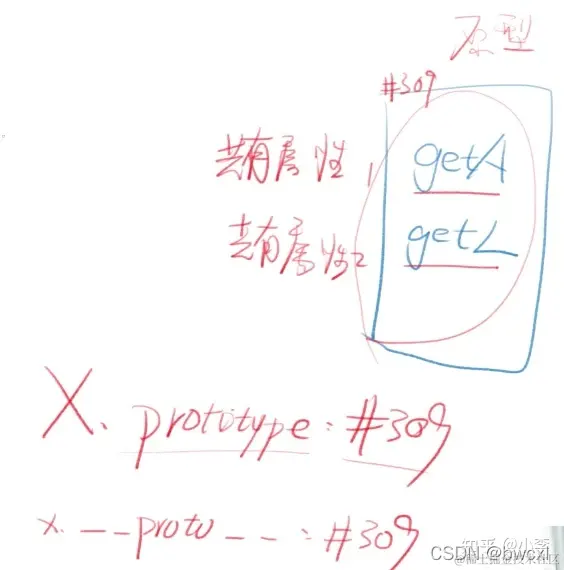 原型
#309
共有属性1
getA
共有属性2
getL
X.prototype:#309
x.__proto__:#309
知乎 @小李
CSDN @bwcxl
@稀土掘金技术社区